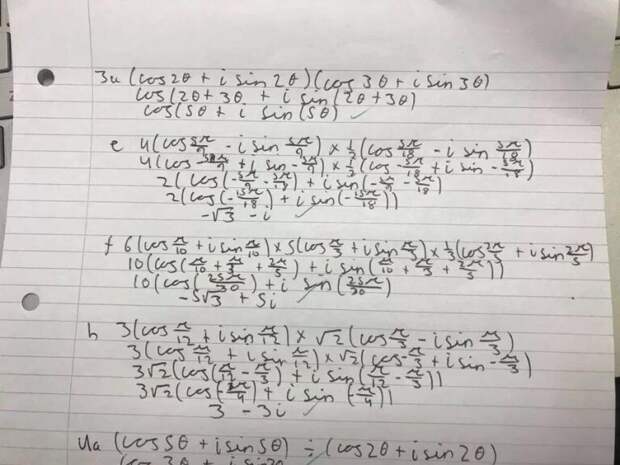 3a (cos2θ + i sin2θ)(cos3θ + i sin3θ)
cos(2θ + 3θ + i sin(2θ + 3θ)
cos(5θ + i sin(5θ) ✓
e 4(cos 5π/9 - i sin 5π/9) × 1/2(cos 5π/18 - i sin 5π/18)
4(cos -5π/9 + i sin -5π/9) × 1/2(cos -5π/18 + i sin -5π/18)
2(cos(-5π/9 - 5π/18) + i sin(-5π/9 - 5π/18)
2(cos(-15π/18) + i sin(-15π/18))
-√3 - i ✓
f 6(cos π/10 + i sin π/10) × 5(cos π/3 + i sin π/3) × 1/3(cos 2π/5 + i sin 2π/5)
10(cos(π/10 + π/3 + 2π/5) + i sin(π/10 + π/3 + 2π/5))
10(cos(25π/30) + i sin(25π/30)
-5√3 + 5i
h 3(cos π/12 + i sin π/12) × √2(cos π/3 - i sin π/3)
3(cos π/12 + i sin π/12) × √2(cos -π/3 + i sin -π/3)
3√2(cos(π/12 - π/3) + i sin(π/12 - π/3))
3√2(cos(-π/4) + i sin(-π/4))
3 - 3i ✓
4a (cos5θ + i sin5θ) ÷ (cos2θ + i sin2θ)